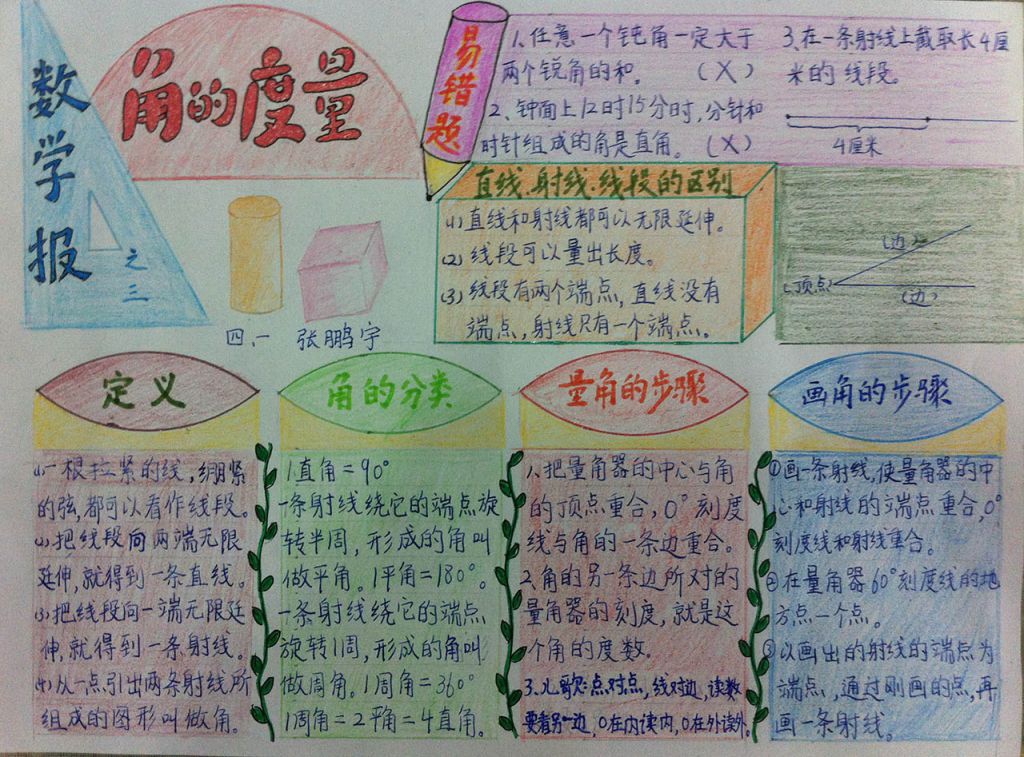 数学报
之三
角的度量
四、一 张鹏宇
易错题
1、任意一个钝角一定大于
两个锐角的和。 (X)
2、钟面上12时15分时,分针和
时针组成的角是直角。 (X)
3、在一条射线上截取长4厘
米的线段。
4厘米
直线、射线、线段的区别
(1)直线和射线都可以无限延伸。
(2)线段可以量出长度。
(3)线段有两个端点,直线没有
端点,射线只有一个端点。
(边)
(顶点)
(边)
定义
(1)一根拉紧的线,绷紧
的弦,都可以看作线段。
(2)把线段向两端无限
延伸,就得到一条直线。
(3)把线段向一端无限延
伸,就得到一条射线。
(4)从一点引出两条射线所
组成的图形叫做角。
角的分类
1直角=90°
一条射线绕它的端点旋
转半周,形成的角叫
做平角。1平角=180°。
一条射线绕它的端点
旋转1周,形成的角叫
做周角。1周角=360°
1周角=2平角=4直角。
量角的步骤
1、把量角器的中心与角
的顶点重合,0°刻度
线与角的一条边重合。
2、角的另一条边所对的
量角器的刻度,就是这
个角的度数。
3、儿歌:点对点,线对边,读数
要看另一边,0在内读内,0在外读外。
画角的步骤
①画一条射线,使量角器的中
心和射线的端点重合,0°
刻度线和射线重合。
②在量角器60°刻度线的地
方点一个点。
③以画出的射线的端点为
端点,通过刚画的点,再
画一条射线。